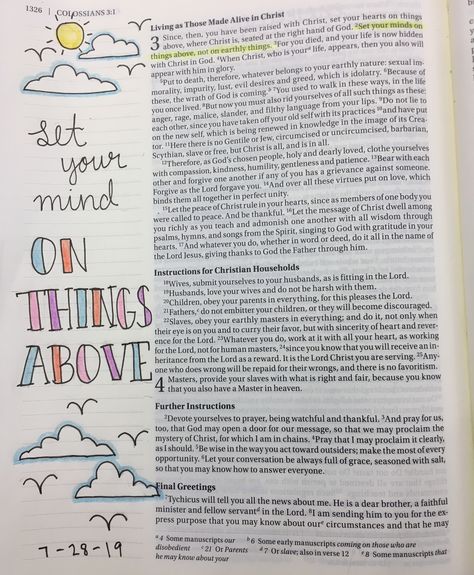 1326 | COLOSSIANS 3:1
set
your
mind
ON
THINGS
ABOVE
7-28-19
Living as Those Made Alive in Christ
3 Since, then, you have been raised with Christ, set your hearts on things
above, where Christ is, seated at the right hand of God. 2Set your minds on
things above, not on earthly things. 3For you died, and your life is now hidden
with Christ in God. 4When Christ, who is youra life, appears, then you also will
appear with him in glory.
5Put to death, therefore, whatever belongs to your earthly nature: sexual im-
morality, impurity, lust, evil desires and greed, which is idolatry. 6Because of
these, the wrath of God is coming.b 7You used to walk in these ways, in the life
you once lived. 8But now you must also rid yourselves of all such things as these:
anger, rage, malice, slander, and filthy language from your lips. 9Do not lie to
each other, since you have taken off your old self with its practices 10and have put
on the new self, which is being renewed in knowledge in the image of its Crea-
tor. 11Here there is no Gentile or Jew, circumcised or uncircumcised, barbarian,
Scythian, slave or free, but Christ is all, and is in all.
12Therefore, as God's chosen people, holy and dearly loved, clothe yourselves
with compassion, kindness, humility, gentleness and patience. 13Bear with each
other and forgive one another if any of you has a grievance against someone.
Forgive as the Lord forgave you. 14And over all these virtues put on love, which
binds them all together in perfect unity.
15Let the peace of Christ rule in your hearts, since as members of one body you
were called to peace. And be thankful. 16Let the message of Christ dwell among
you richly as you teach and admonish one another with all wisdom through
psalms, hymns, and songs from the Spirit, singing to God with gratitude in your
hearts. 17And whatever you do, whether in word or deed, do it all in the name of
the Lord Jesus, giving thanks to God the Father through him.
Instructions for Christian Households
18Wives, submit yourselves to your husbands, as is fitting in the Lord.
19Husbands, love your wives and do not be harsh with them.
20Children, obey your parents in everything, for this pleases the Lord.
21Fathers,c do not embitter your children, or they will become discouraged.
22Slaves, obey your earthly masters in everything; and do it, not only when
their eye is on you and to curry their favor, but with sincerity of heart and rever-
ence for the Lord. 23Whatever you do, work at it with all your heart, as working
for the Lord, not for human masters, 24since you know that you will receive an in-
heritance from the Lord as a reward. It is the Lord Christ you are serving. 25Any-
one who does wrong will be repaid for their wrongs, and there is no favoritism.
4 Masters, provide your slaves with what is right and fair, because you know
that you also have a Master in heaven.
Further Instructions
2Devote yourselves to prayer, being watchful and thankful. 3And pray for us,
too, that God may open a door for our message, so that we may proclaim the
mystery of Christ, for which I am in chains. 4Pray that I may proclaim it clearly,
as I should. 5Be wise in the way you act toward outsiders; make the most of every
opportunity. 6Let your conversation be always full of grace, seasoned with salt,
so that you may know how to answer everyone.
Final Greetings
7Tychicus will tell you all the news about me. He is a dear brother, a faithful
minister and fellow servantd in the Lord. 8I am sending him to you for the ex-
press purpose that you may know about oure circumstances and that he may
a4 Some manuscripts our b6 Some early manuscripts coming on those who are
disobedient c21 Or Parents d7 Or slave; also in verse 12 e8 Some manuscripts that
he may know about your